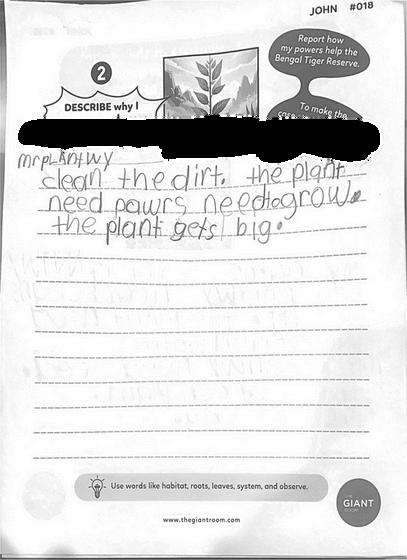 JOHN #018
Report how
my powers help the
Bengal Tiger Reserve.
2
DESCRIBE why I
To make the
mrpLAntwy
clean the dirt. the plant
need pawrs needtogrow.
the plant gets big.
Use words like habitat, roots, leaves, system, and observe.
THE
GIANT
ROOM
www.thegiantroom.com